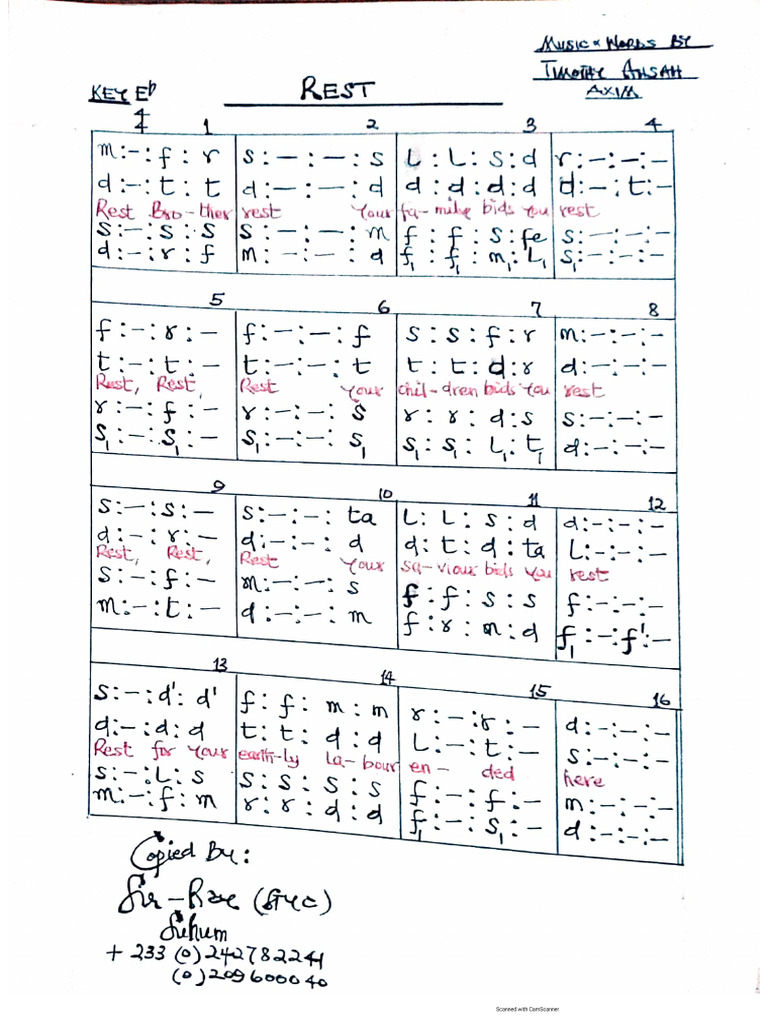 MUSIC & WORDS BY
TIMOTHY ANSAH
AXIM
KEY Eb
REST
4
4
1 2 3 4
m:-:f:r | s:-:-:s | L:L:s:d | r:-:-:-
d:-:t:t | d:-:-:d | d:d:d:d | d:-:t:-
Rest Bro-ther rest Your fa-mily bids you rest
s:-:s:s | s:-:-:m | f:f:s:fe | s:-:-:-
d:-:r:f | m:-:-:d | f₁:f₁:m₁:L₁ | s₁:-:-:-
5 6 7 8
f:-:r:- | f:-:-:f | s:s:f:r | m:-:-:-
t:-:t:- | t:-:-:t | t:t:d:r | d:-:-:-
Rest, Rest, Rest Your chil-dren bids you rest
r:-:f:- | r:-:-:s | r:r:d:s | s:-:-:-
s₁:-:s₁:- | s₁:-:-:s₁ | s₁:s₁:L₁:t₁ | d:-:-:-
9 10 11 12
s:-:s:- | s:-:-:ta | L:L:s:d | d:-:-:-
d:-:r:- | d:-:-:d | d:t:d:ta | L:-:-:-
Rest, Rest, Rest Your sa-viour bids you rest
s:-:f:- | m:-:-:s | f:f:s:s | f:-:-:-
m:-:t:- | d:-:-:m | f:r:m:d | f₁:-:f':-
13 14 15 16
s:-:d':d' | f:f:m:m | r:-:r:- | d:-:-:-
d:-:d:d | t:t:d:d | L:-:t:- | s:-:-:-
Rest for your earth-ly la-bour en-ded here
s:-:L:s | s:s:s:s | f:-:f:- | m:-:-:-
m:-:f:m | r:r:d:d | f₁:-:s₁:- | d:-:-:-
Copied By:
Sir-Rae
Suhum
+233 (0) 242782241
(0) 209600040
Scanned with CamScanner